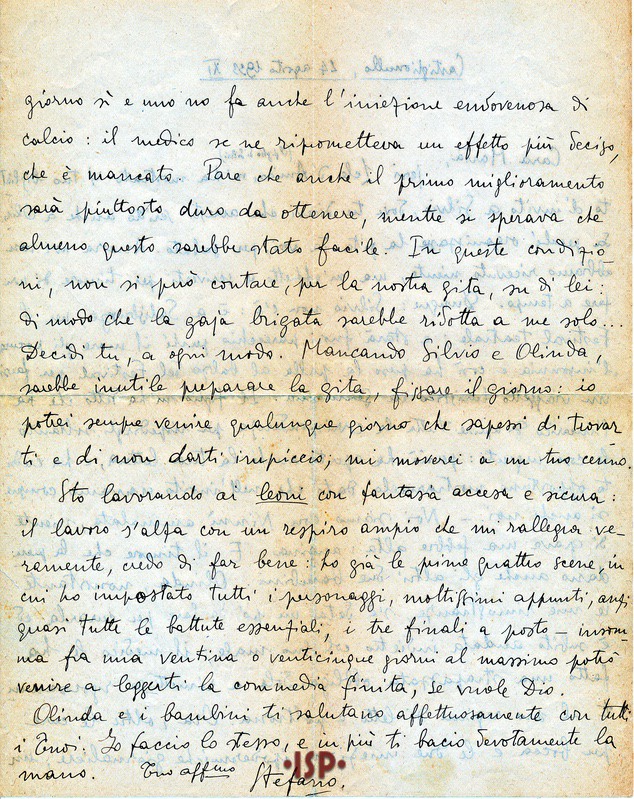 giorno sì e uno no fa anche l'iniezione endovenosa di
calcio: il medico se ne riprometteva un effetto più deciso,
che è mancato. Pare che anche il primo miglioramento
sarà piuttosto duro da ottenere, mentre si sperava che
almeno questo sarebbe stato facile. In queste condizio-
ni, non si può contare, per la nostra gita, su di lei:
di modo che la gaja brigata sarebbe ridotta a me solo...
Decidi tu, a ogni modo. Mancando Silvio e Olinda,
sarebbe inutile preparare la gita, fissare il giorno: io
potrei sempre venire qualunque giorno che sapessi di trovar
ti e di non darti impiccio; mi moverei a un tuo cenno.
Sto lavorando ai leoni con fantasia accesa e sicura:
il lavoro s'alza con un respiro ampio che mi rallegra ve-
ramente, credo di far bene: ho già le prime quattro scene, in
cui ho impostato tutti i personaggi, moltissimi appunti, anzi
quasi tutte le battute essenziali, i tre finali a posto – insom
ma fra una ventina o venticinque giorni al massimo potrò
venire a leggerti la commedia finita, se vuole Dio.
Olinda e i bambini ti salutano affettuosamente con tutti
i Tuoi. Io faccio lo stesso, e in più ti bacio devotamente la
mano. Tuo affmo Stefano.
ISP